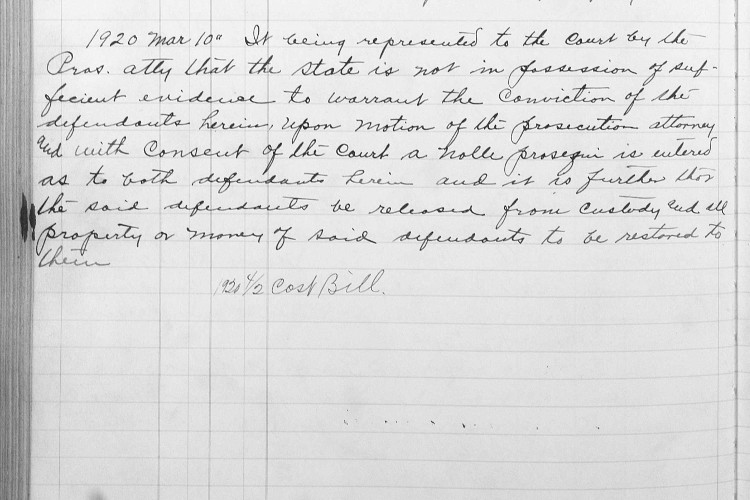 1920 Mar 10" It being represented to the Court by the
Pros. atty that the State is not in possession of suf-
fecient evidence to warrant the Conviction of the
defendants herein, Upon Motion of the prosecution attorney
and with Consent of the Court a Nolle prosequi is entered
as to both defendants herein and it is further
the said defendants be released from Custody and all
property or Money of said defendants to be restored to
them
1920 4/2 Cost Bill.